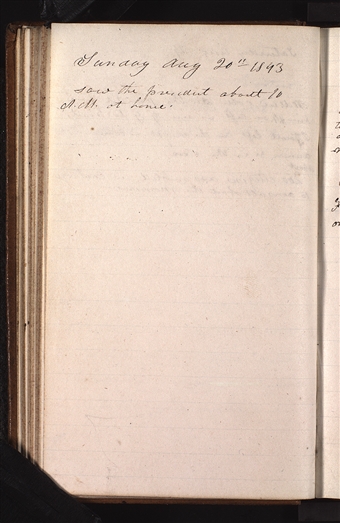 Sunday Aug 20th 1893
saw the president about 10
A.M. at home.